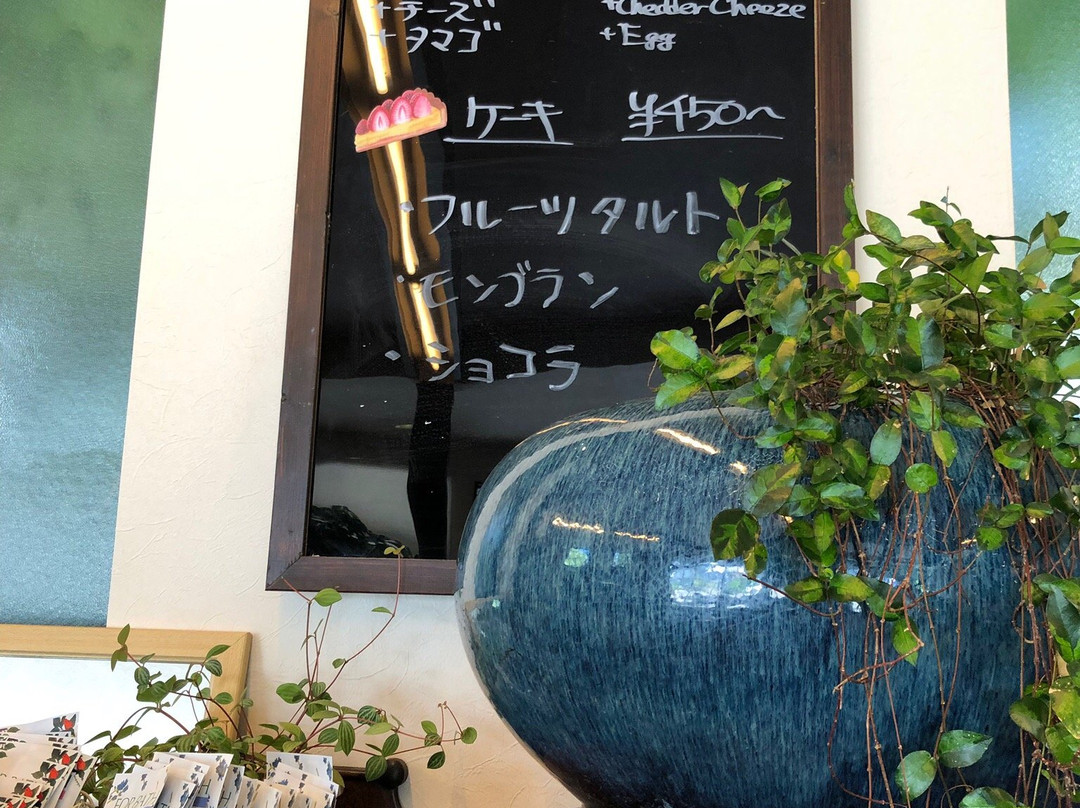 +チーズ +Chedder Cheeze
+タマゴ +Egg
ケーキ ¥450〜
・フルーツタルト
・モンブラン
・ショコラ